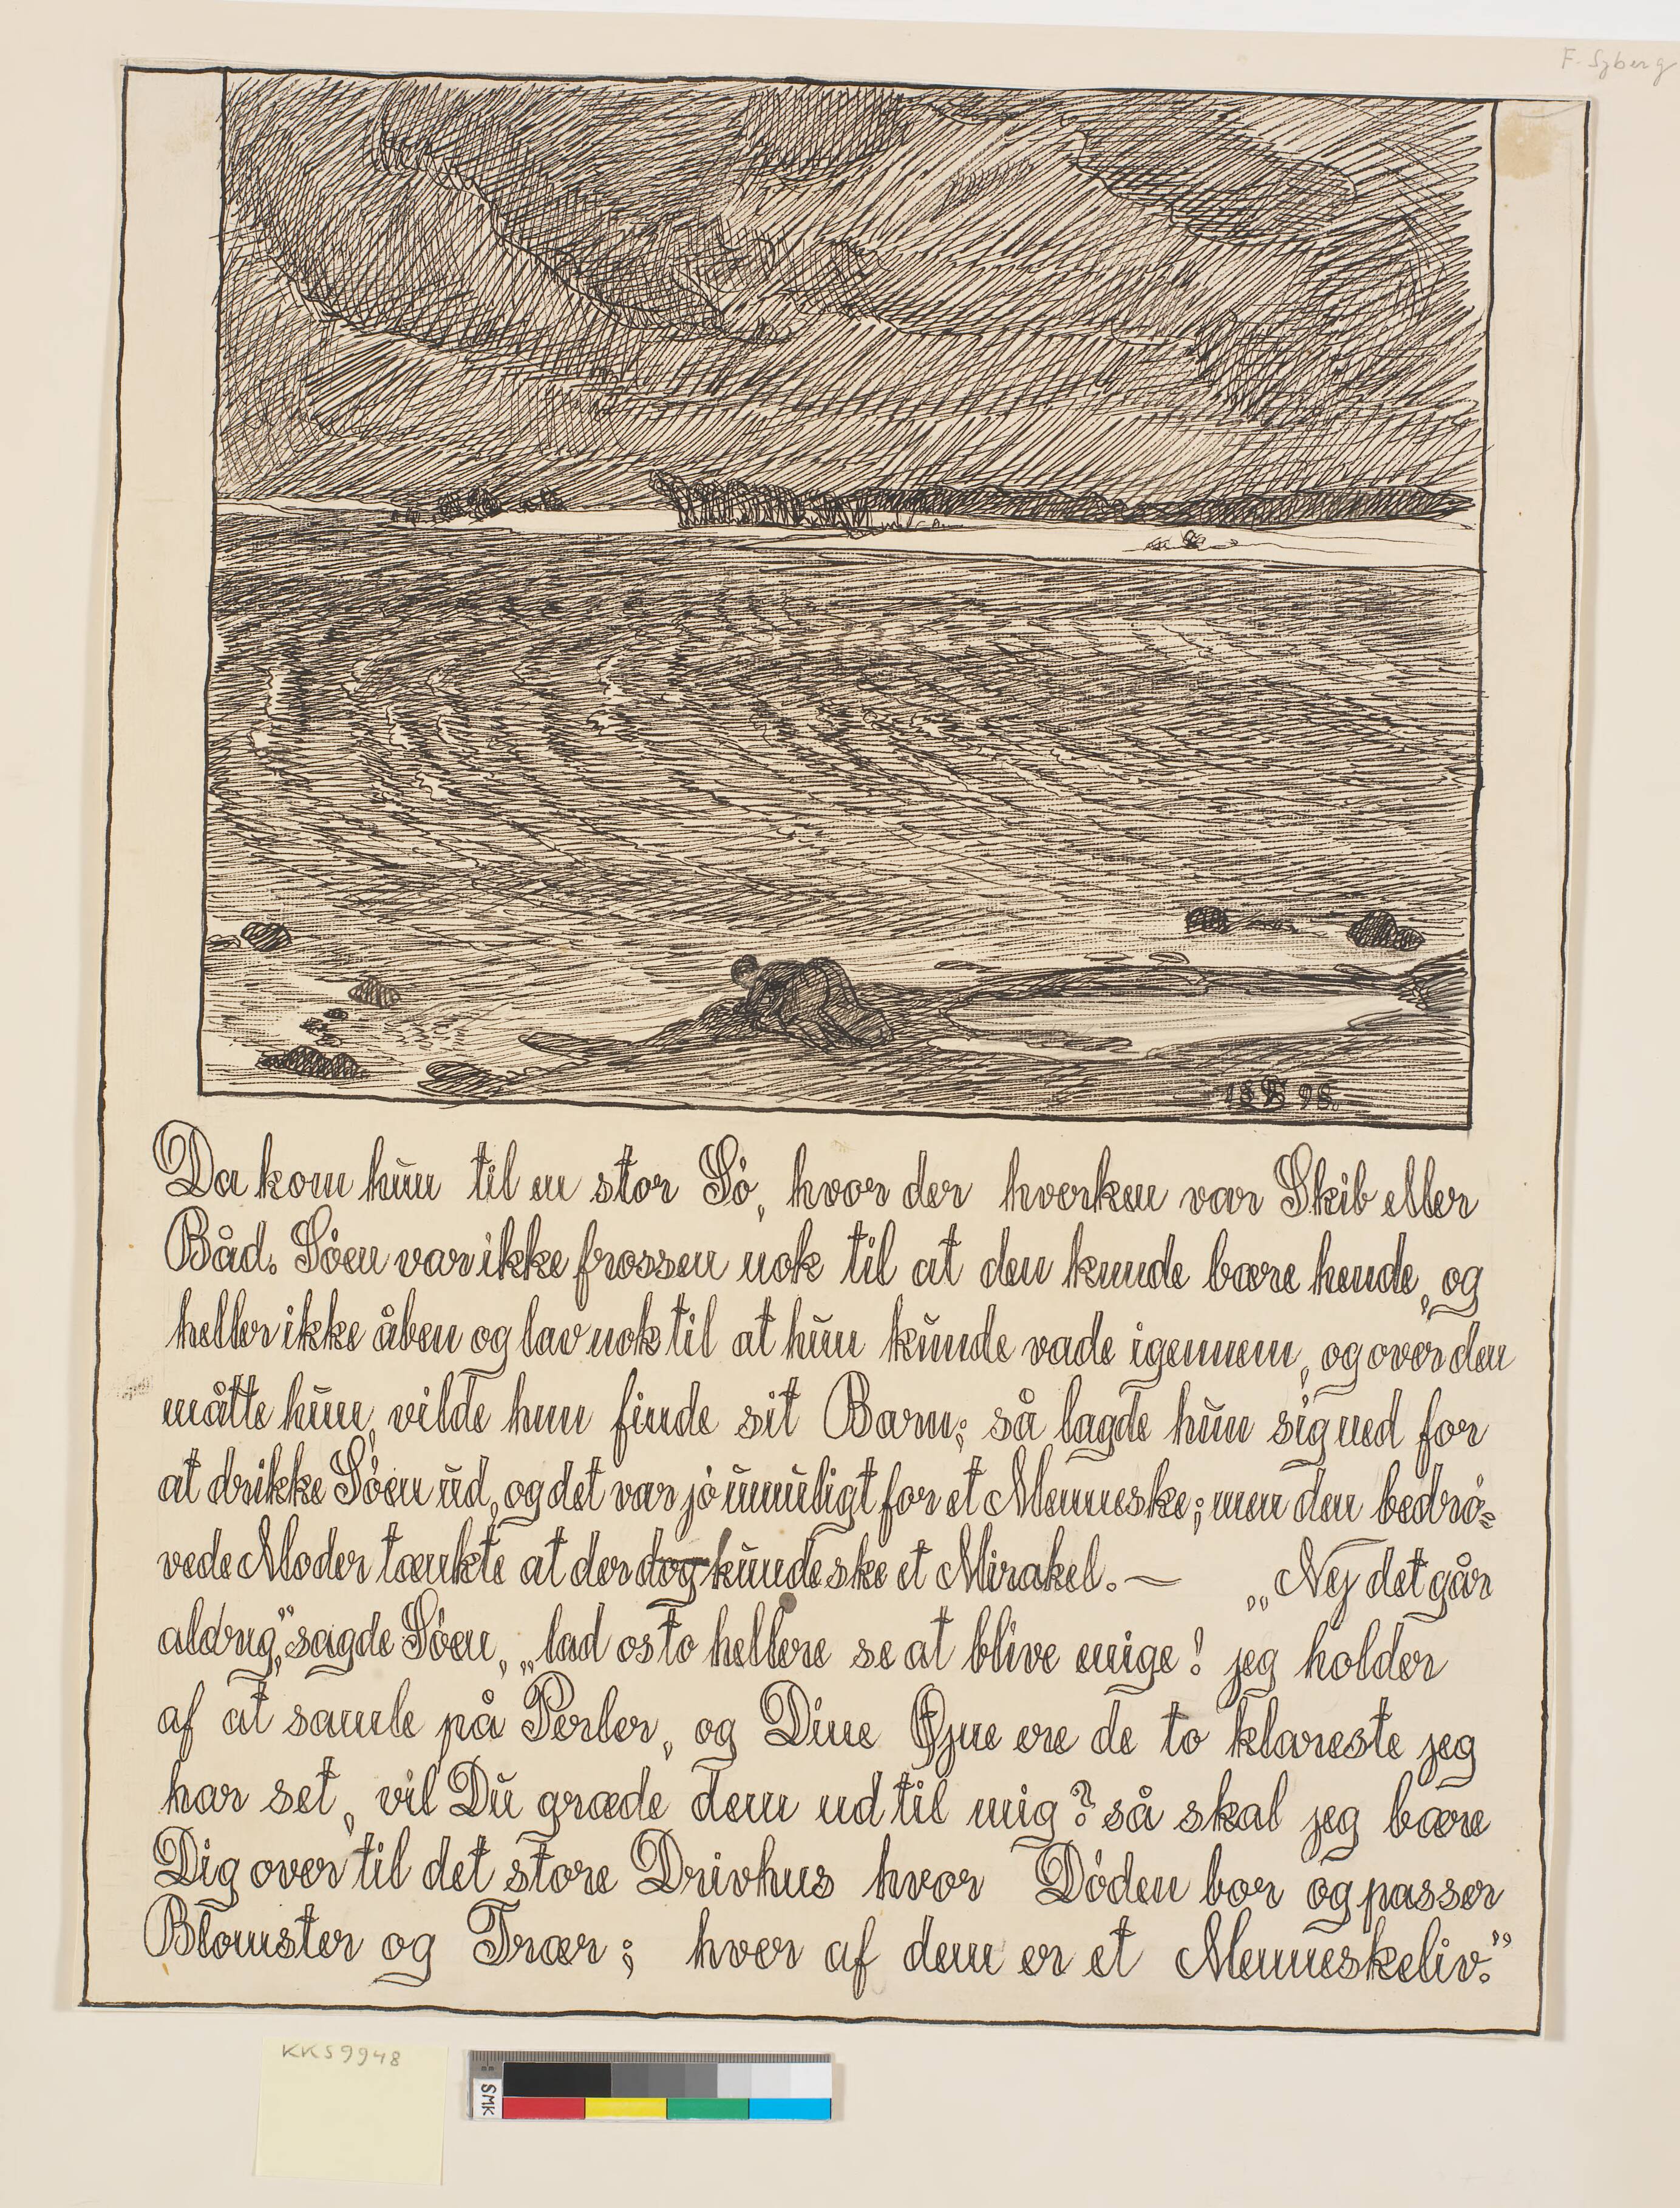 F. Syberg
1898.
Da kom hun til en stor Sö, hvor der hverken var Skib eller
Båd. Söen var ikke frossen nok til at den kunde bære hende, og
heller ikke åben og lav nok til at hun kunde vade igennem, og over den
måtte hun, vilde hun finde sit Barn; så lagde hun sig ned for
at drikke Söen ud, og det var jo umuligt for et Menneske; men den bedrö=
vede Moder tænkte at der dog kunde ske et Mirakel. — „Nej det går
aldrig," sagde Söen, „lad os to hellere se at blive enige! jeg holder
af at samle på Perler, og Dine Øjne ere de to klareste jeg
har set, vil Du græde dem ud til mig? så skal jeg bære
Dig over til det store Drivhus hvor Döden bor og passer
Blomster og Trær; hver af dem er et Menneskeliv."
KKS9948
SMK